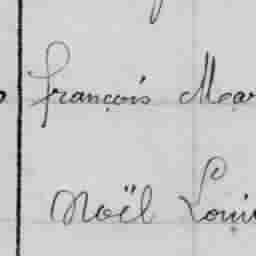 François Mar
Noël Loui